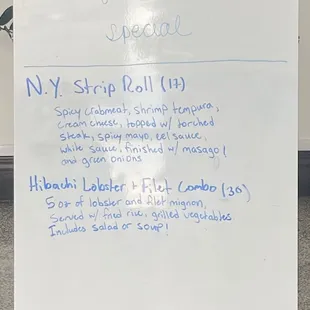 special
N.Y. Strip Roll (17)
Spicy crabmeat, shrimp tempura,
cream cheese, topped w/ torched
steak, spicy mayo, eel sauce,
white sauce, finished w/ masago
and green onions
Hibachi Lobster + Filet Combo (36)
5 oz of lobster and filet mignon,
Served w/ fried rice, grilled vegetables
Includes salad or soup!